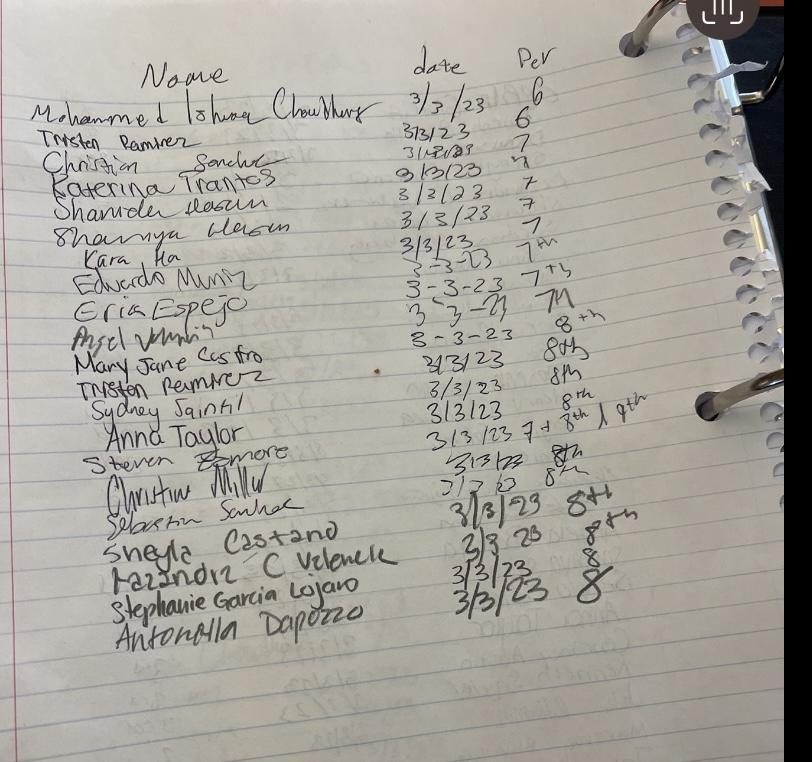 Name date Per
Mohammed Chowdhury 3/3/23 6
Tristen Ramirez 3/3/23 6
Christian 7
Katerina Trantos 3/3/23 7
Shamida Hasan 3/3/23 7
Shamya Hasan 3/3/23 7
Kara Ha 3/3/23 7
Edwardo Muniz 3-3-23 7th
Eria Espejo 3-3-23 7th
Angel 3-3-23 7th
Mary Jane Castro 3-3-23 8th
Tristen Ramirez 3/3/23 8th
Sydney Saintil 3/3/23 8th
Anna Taylor 3/3/23 8th
Steven 3/3/23 7+8th
Christine Miller 3/3/23 8th
Sebastian 3/3/23 8th
Sneyla Castano 3/3/23 8th
C 3/3 23 8th
Stephanie Garcia Lojano 3/3/23 8
Antonella Dapozzo 3/3/23 8